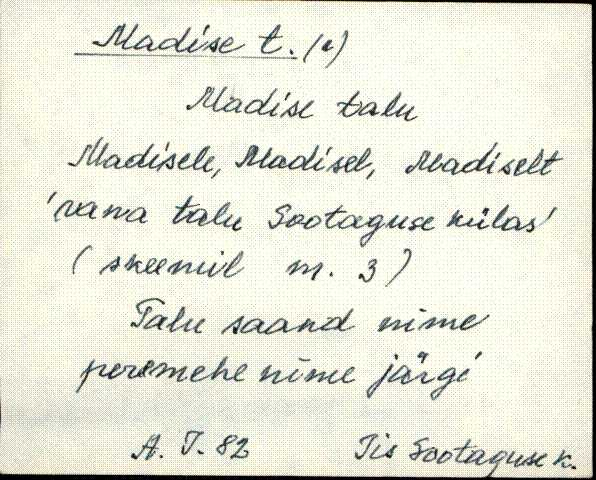 Madise t. (1)
Madise talu
Madisele, Madisel, Madiselt
'vana talu Sootaguse külas'
(skeemil m. 3)
Talu saand nime
peremehe nime järgi
A. J. 82 Iis Sootaguse k.